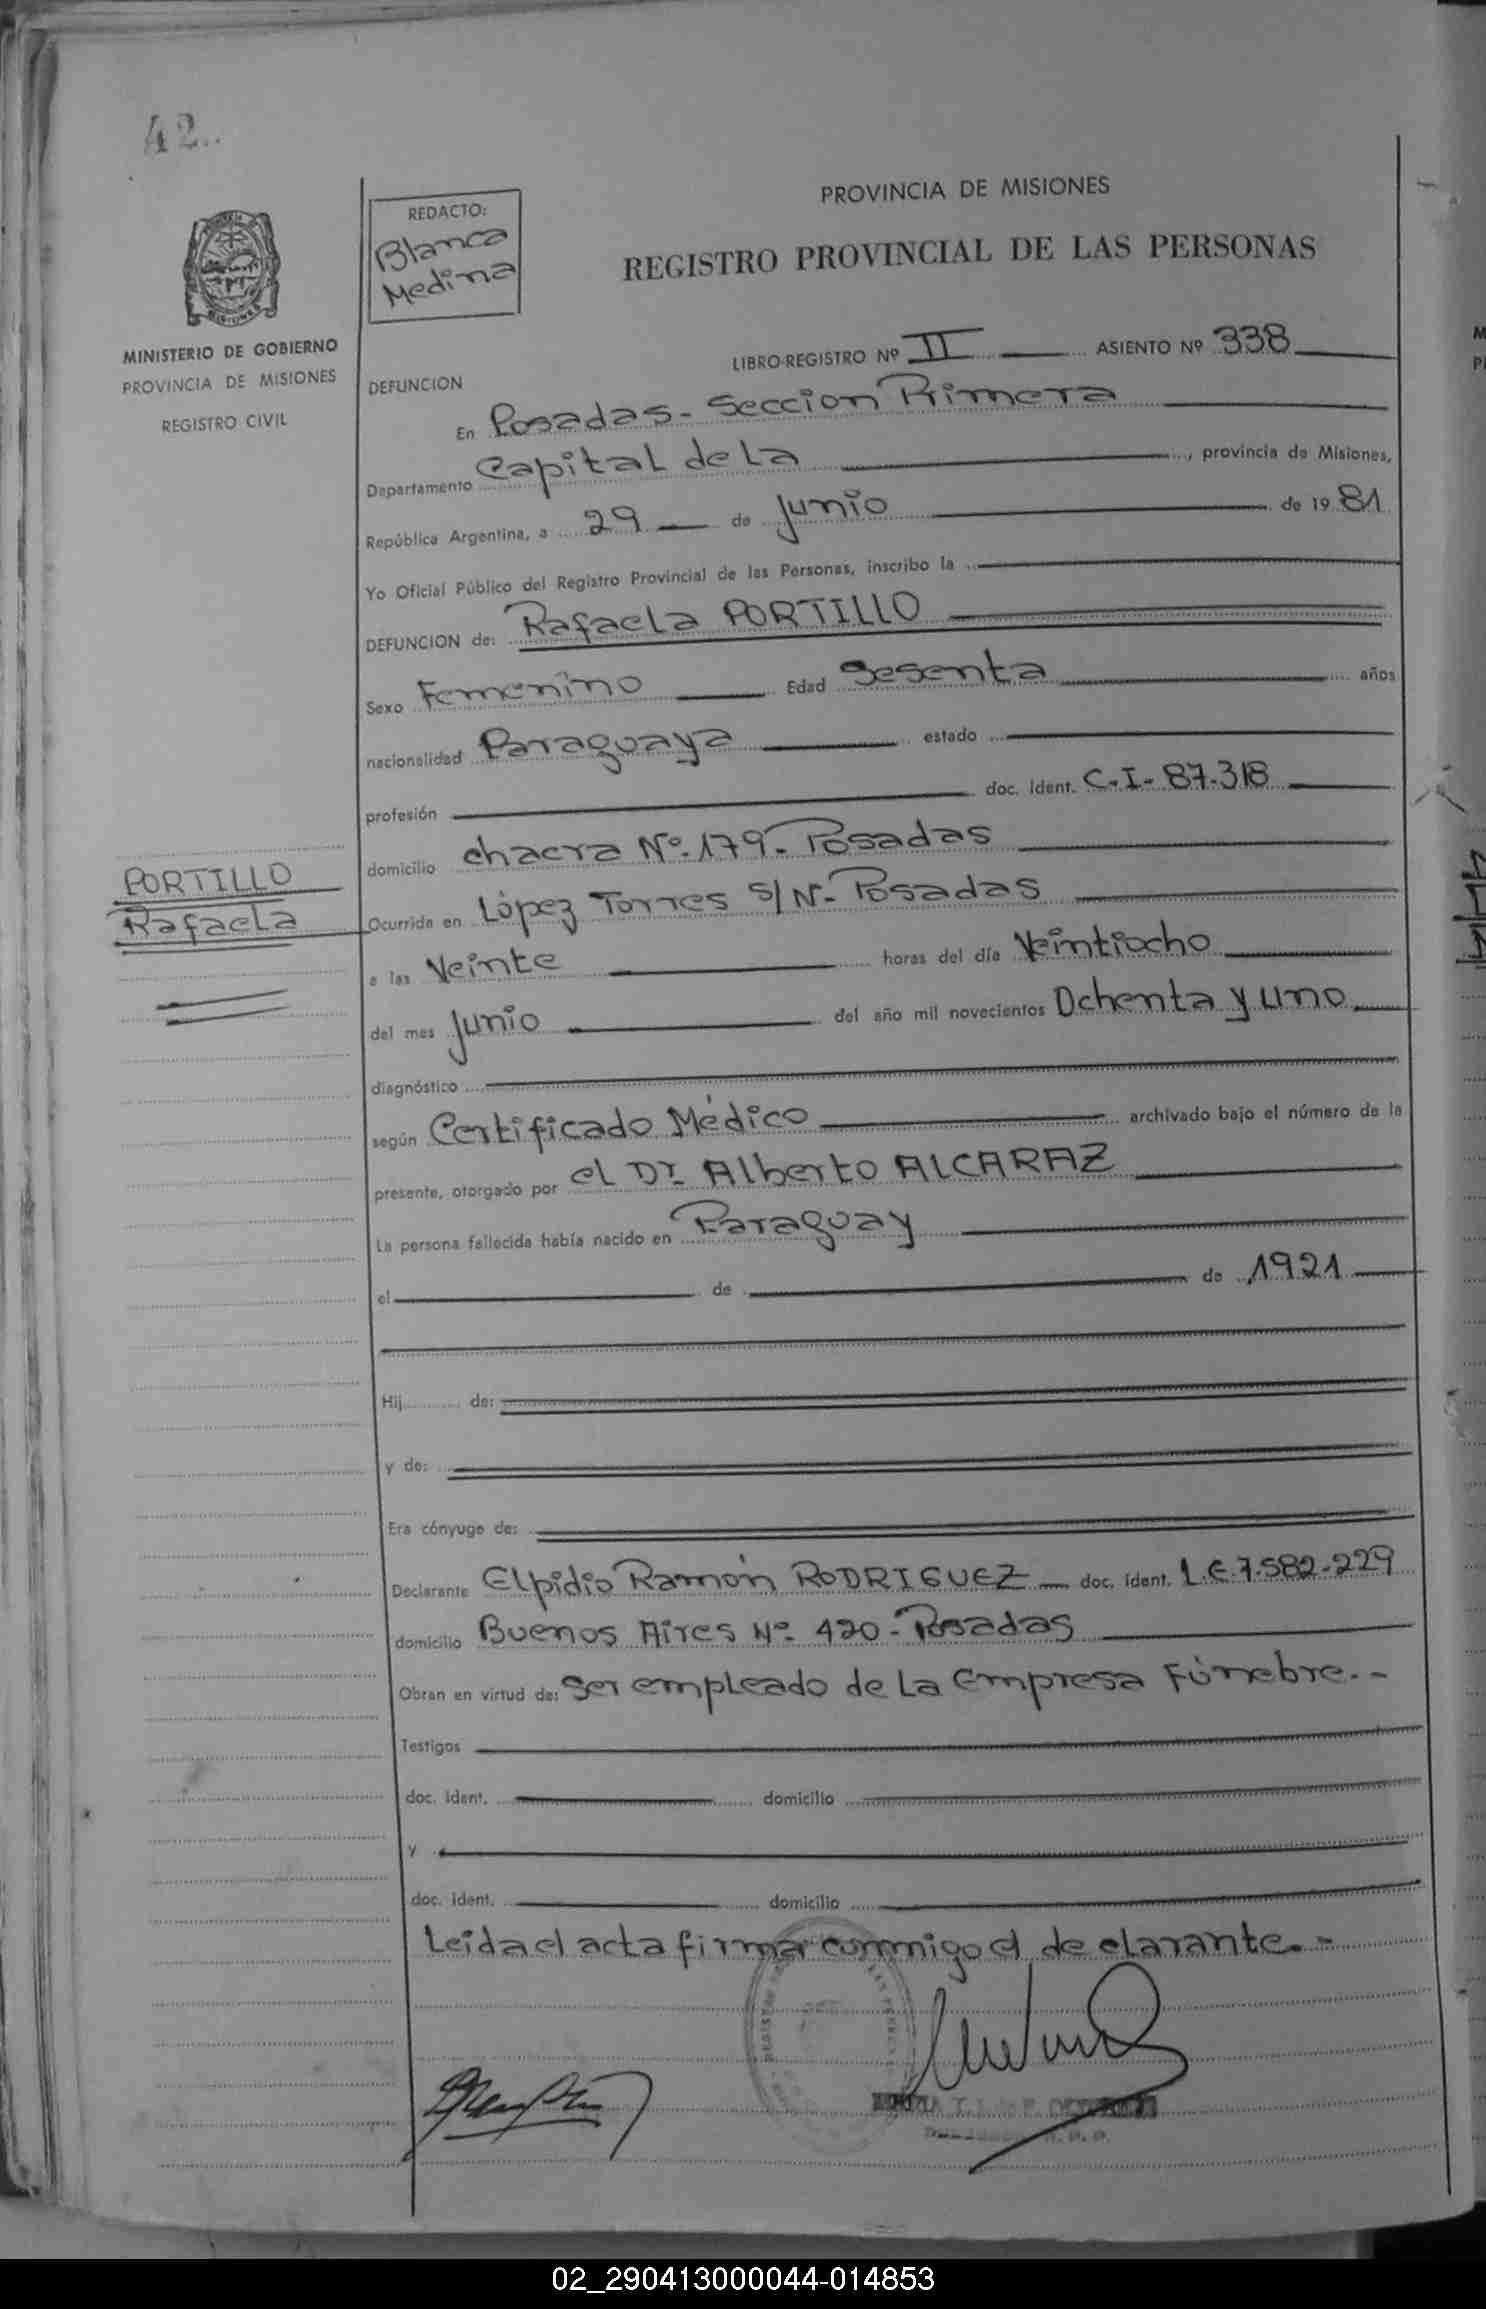 42..
REDACTO:
Blanca
Medina
PROVINCIA DE MISIONES
REGISTRO PROVINCIAL DE LAS PERSONAS
MINISTERIO DE GOBIERNO
PROVINCIA DE MISIONES
REGISTRO CIVIL
LIBRO-REGISTRO Nº II ASIENTO Nº 338
DEFUNCION
En Posadas - Seccion Primera
Departamento Capital de La, provincia de Misiones,
República Argentina, a 29 de Junio de 1981
Yo Oficial Público del Registro Provincial de las Personas, inscribo la
DEFUNCION de: Rafaela PORTILLO
Sexo Femenino Edad Sesenta años
nacionalidad Paraguaya estado
profesión doc. Ident. C-I- 87.318
domicilio chacra Nº 179- Posadas
PORTILLO
Rafaela
Ocurrida en López Torres S/N- Posadas
a las Veinte horas del día Veintiocho
del mes Junio del año mil novecientos Ochenta y uno
diagnóstico
según Certificado Médico archivado bajo el número de la
presente, otorgado por el Dr. Alberto ALCARAZ
La persona fallecida había nacido en Paraguay
el de de 1921
Hij de:
y de:
Era cónyuge de:
Declarante Elpidio Ramón RODRIGUEZ doc. Ident. L.E.7.582-229
domicilio Buenos Aires Nº 420- Posadas
Obran en virtud de: Ser empleado de La Empresa Fúnebre.-
Testigos
doc. Ident. domicilio
y
doc. Ident. domicilio
Leida el acta firma conmigo el declarante.-
02_290413000044-014853